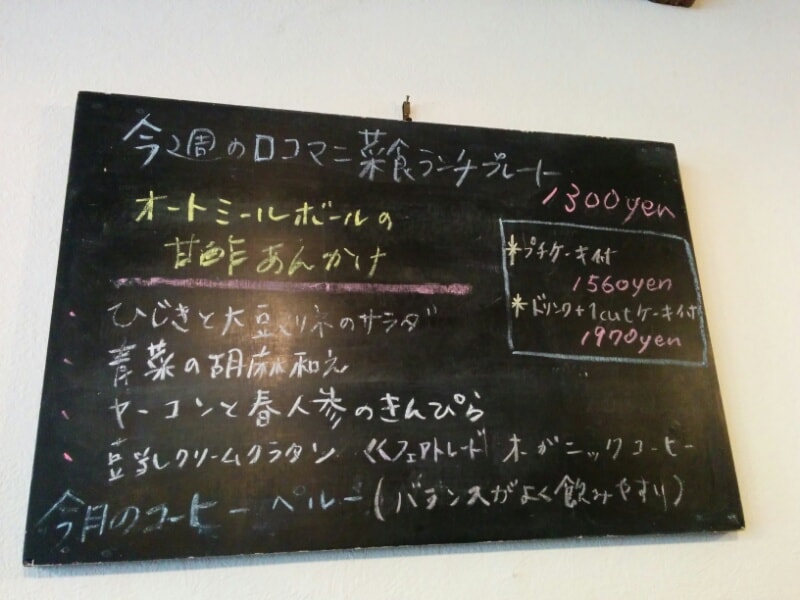 今週のロコマニ菜食ランチプレート
1300yen
オートミールボールの
甘酢あんかけ
*プチケーキ付
1560yen
*ドリンク+1cutケーキ付
1970yen
ひじきと大豆ミートのサラダ
青菜の胡麻和え
ヤーコンと春人参のきんぴら
豆乳クリームグラタン
《フェアトレード オーガニックコーヒー
今月のコーヒー ペルー(バランスがよく飲みやすい)